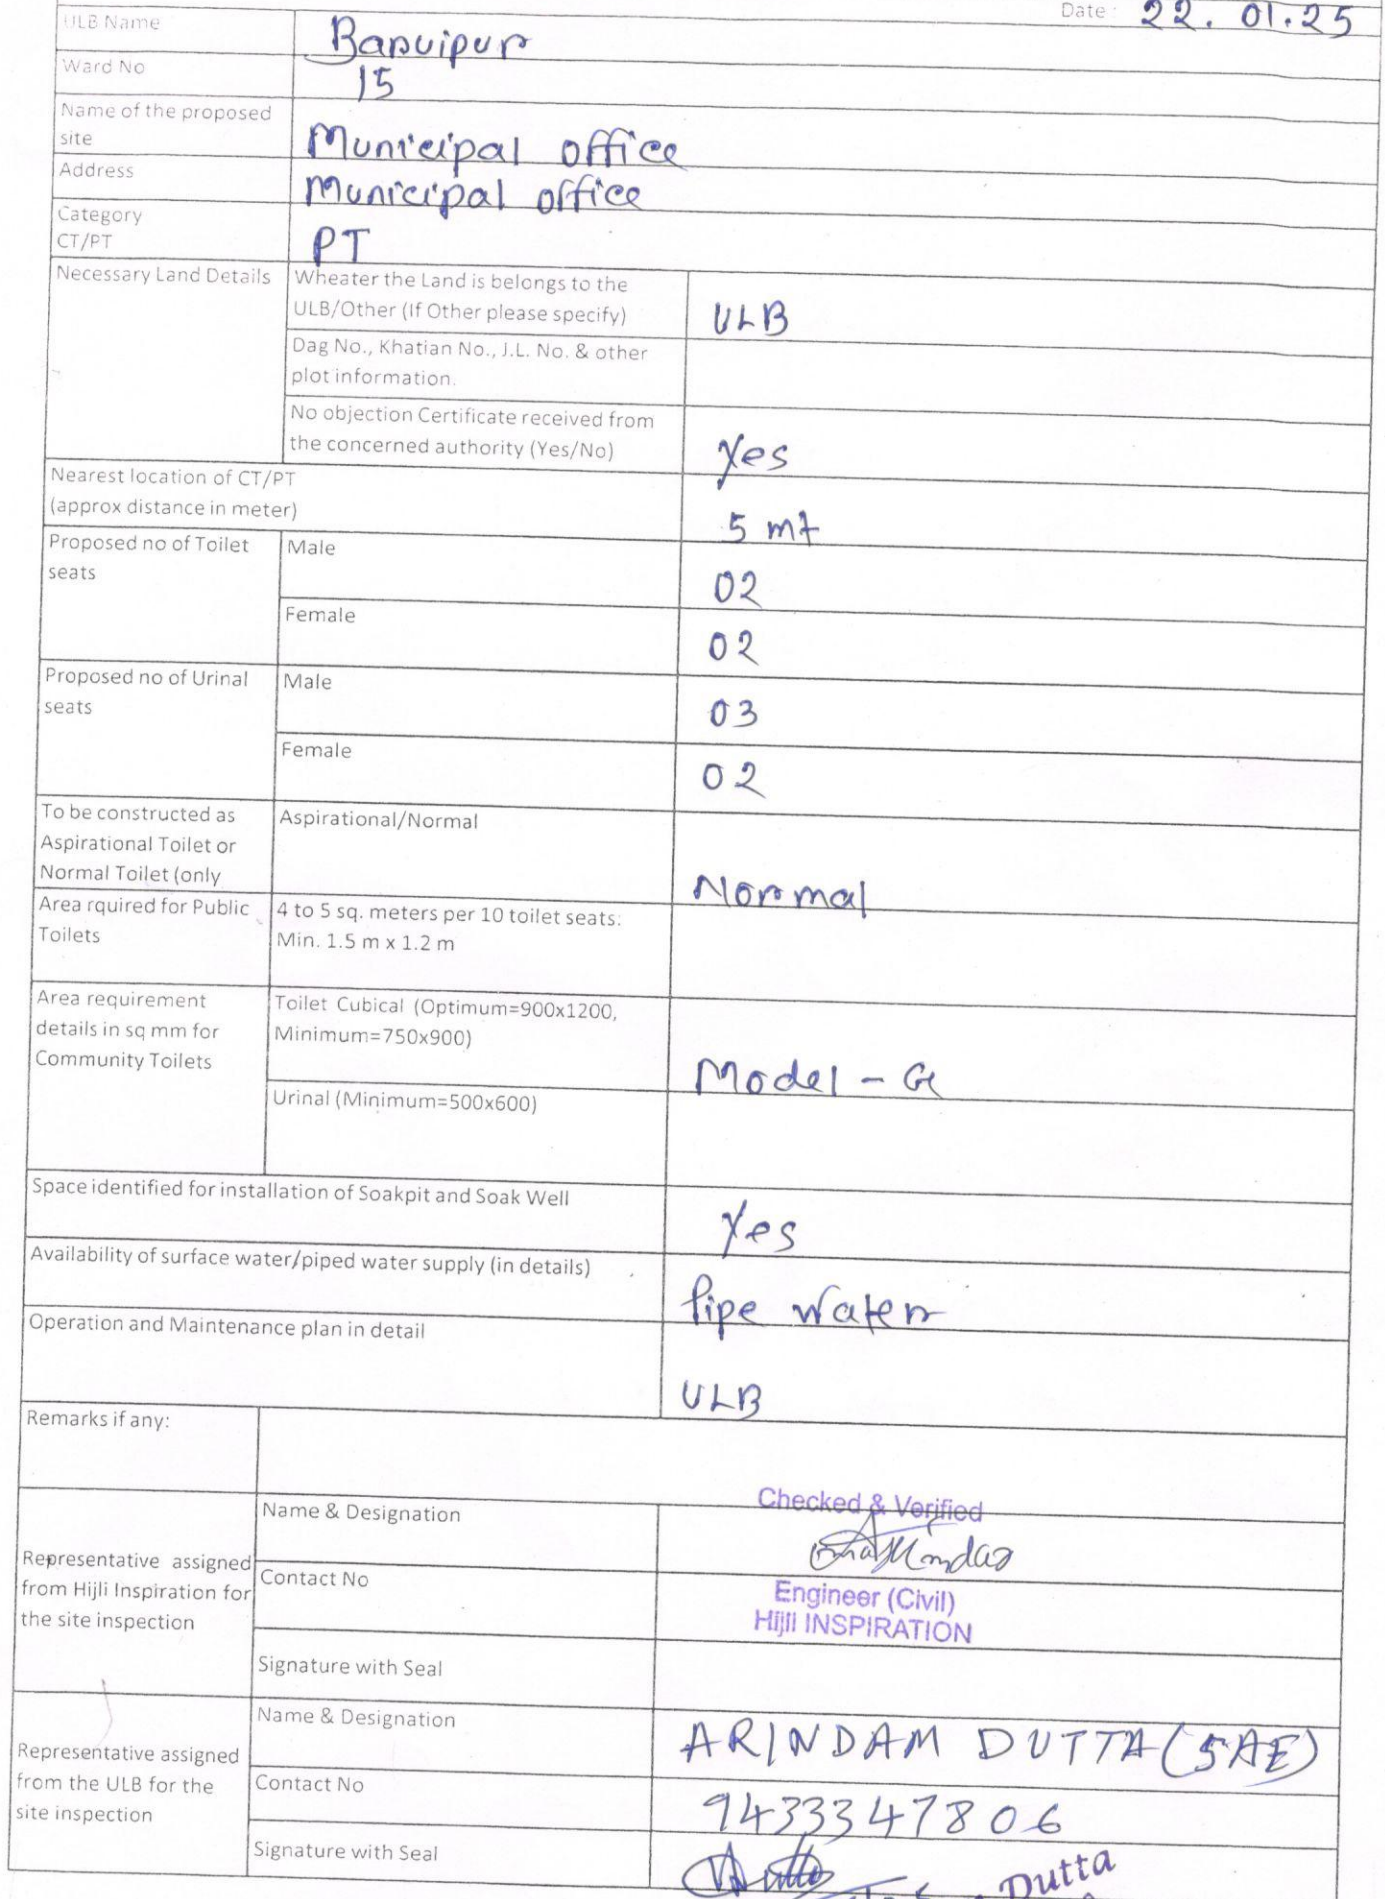 Date : 22. 01.25
ULB Name
Baruipur
Ward No
15
Name of the proposed
site
Municipal office
Address
Municipal office
Category
CT/PT
PT
Necessary Land Details
Wheater the Land is belongs to the
ULB/Other (If Other please specify)
ULB
Dag No., Khatian No., J.L. No. & other
plot information.
No objection Certificate received from
the concerned authority (Yes/No)
Yes
Nearest location of CT/PT
(approx distance in meter)
5 mt
Proposed no of Toilet
seats
Male
02
Female
02
Proposed no of Urinal
seats
Male
03
Female
02
To be constructed as
Aspirational Toilet or
Normal Toilet (only
Aspirational/Normal
Normal
Area rquired for Public
Toilets
4 to 5 sq. meters per 10 toilet seats:
Min. 1.5 m x 1.2 m
Area requirement
details in sq mm for
Community Toilets
Toilet Cubical (Optimum=900x1200,
Minimum=750x900)
Model - G
Urinal (Minimum=500x600)
Space identified for installation of Soakpit and Soak Well
Yes
Availability of surface water/piped water supply (in details)
Pipe Water
Operation and Maintenance plan in detail
ULB
Remarks if any:
Representative assigned
from Hijli Inspiration for
the site inspection
Name & Designation
Checked & Verified
Contact No
Engineer (Civil)
Hijli INSPIRATION
Signature with Seal
Representative assigned
from the ULB for the
site inspection
Name & Designation
ARINDAM DUTTA (SAE)
Contact No
9433347806
Signature with Seal
Dutta